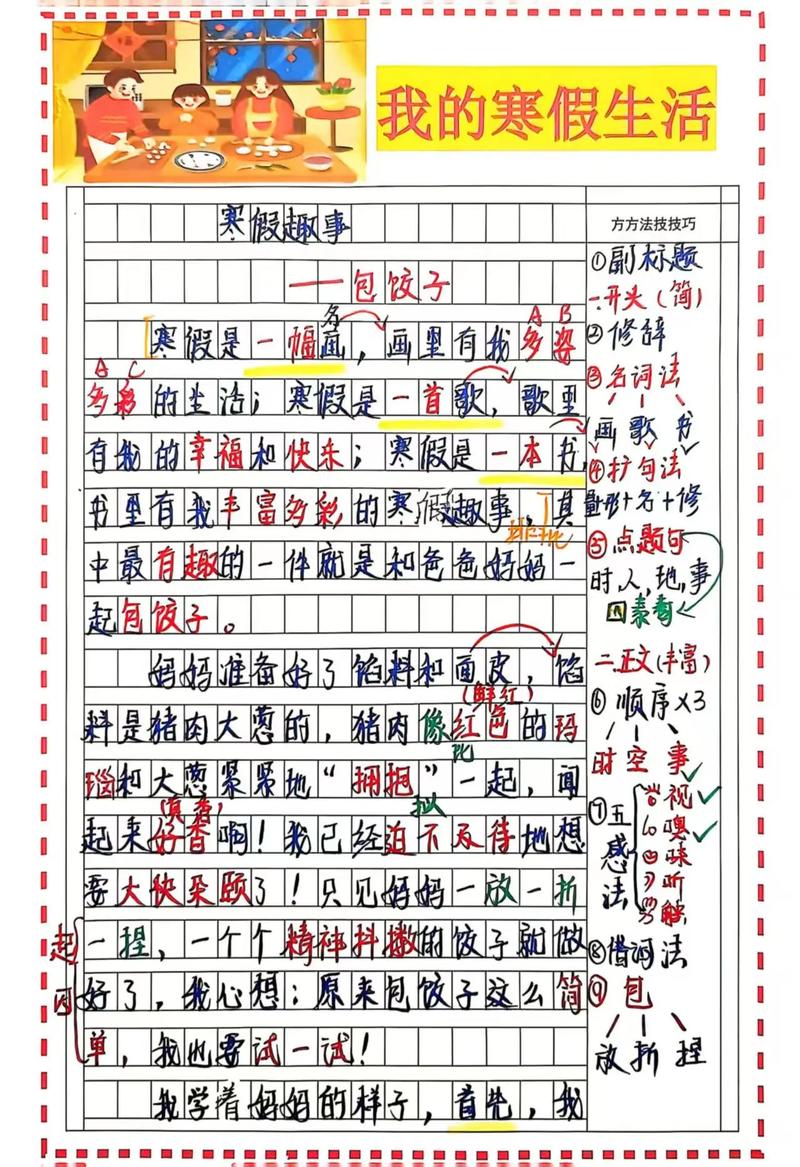 我的寒假生活
寒假趣事
——包饺子
名
A B
寒假是一幅画，画里有我多姿
A C
多彩的生活；寒假是一首歌，歌里
有我的幸福和快乐；寒假是一本书，
书里有我丰富多彩的寒假趣事，其
排比
中最有趣的一件就是和爸爸妈妈一
起包饺子。
妈妈准备好了馅料和面皮，馅
(鲜红)
料是猪肉大葱的，猪肉像红色的玛
比
瑙和大葱紧紧地“拥抱”一起，闻
(真香) 拟
起来好香啊！我已经迫不及待地想
要大快朵颐了！只见妈妈一放一折
一捏，一个个精神抖擞的饺子就做
好了，我心想：原来包饺子这么简
单，我也要试一试！
我学着妈妈的样子，首先，我
方方法技技巧
①副标题
一.开头(简)
②修辞
③名词法
画 歌 书
④扩句法
量形+名+修
⑤点题句
时,人,地,事
二.正文(丰富)
⑥顺序×3
时 空 事
⑦五感法
视
嗅
味
听
触
⑧借词法
⑨包
放 折 捏